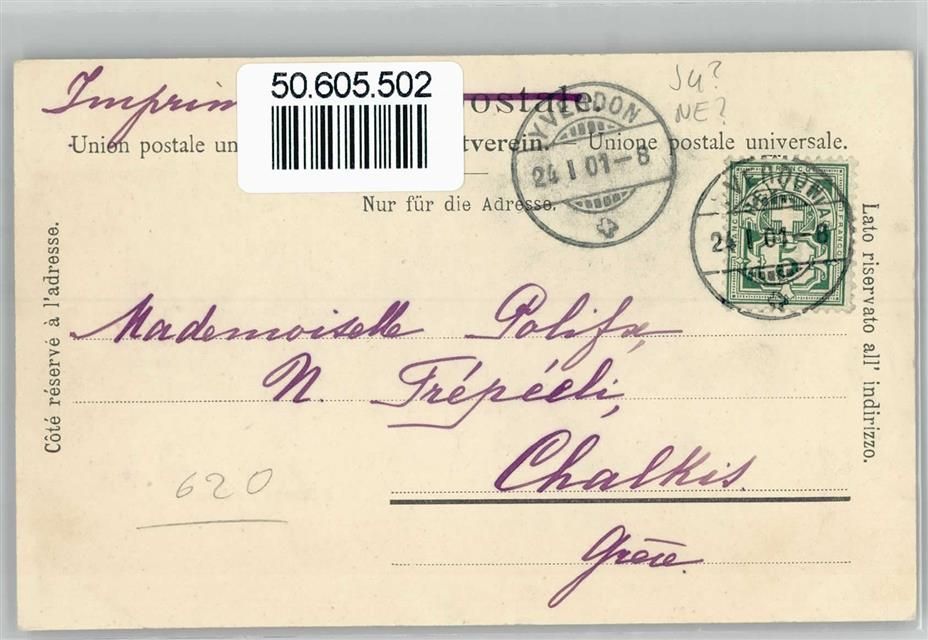 50.605.502
Imprim
ostale.
Ju?
NE?
Union postale un tverein. – Unione postale universale.
Nur für die Adresse.
YVERDON
24 I 01–8
YVERDON
HELVETIA
24 I 01–8
5
Côté réservé à l'adresse.
Lato riservato all' indirizzo.
Mademoiselle
N. Trépéeli,
Chalkis.
Grèce.
620